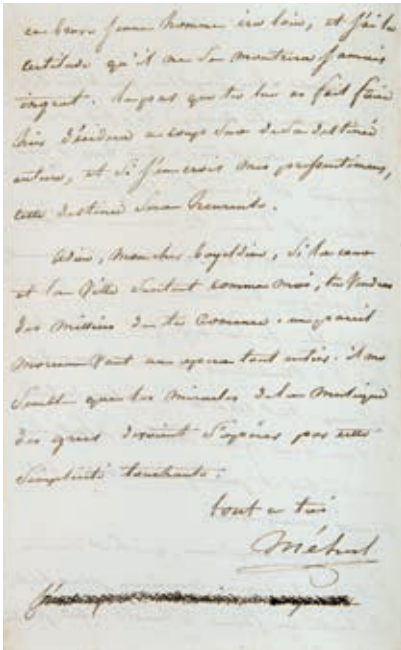 ce brave jeune homme ira loin, et j'ai la
certitude qu'il ne se montrera jamais
ingrat. le pas que tu lui as fait faire
décidera de sa destinée
entière, et si j'en crois mes pressentimens,
cette destinée sera heureuse.
adieu, mon cher Boyeldieu, si la cour
et la Ville sentent comme moi, tu vendras
des milliers de ta romance. un pareil
morceau vaut un opera tout entier. il me
semble que les miracles de la musique
des grecs devoient s'opérer par cette
simplicité touchante.
tout a toi
Méhul